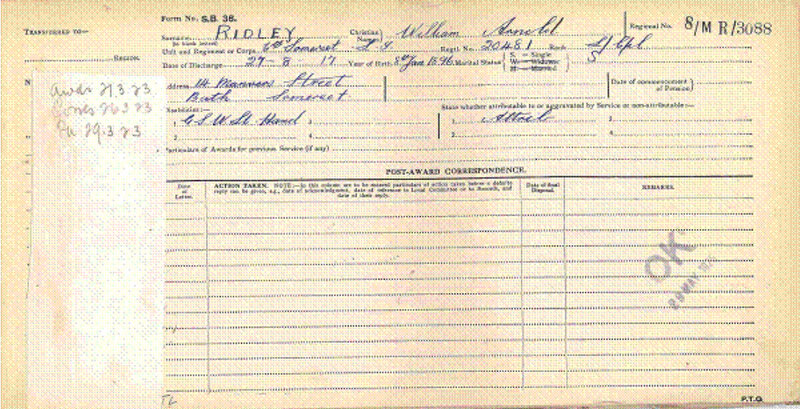 Form No. S.B. 36.
TRANSFERRED TO—
Surname RIDLEY Christian Names William Arnold Regional No. 8/MR/3088
(in block letters)
Records. Unit and Regiment or Corps 6th Somerset L I Regtl. No. 20481 Rank L/Cpl
Date of Discharge 27-8-17 Year of Birth 8th Jan 1896 Marital Status S
S. – Single
W. – Widower
M. – Married
Address 14 Manvers Street
Bath Somerset
Date of commencement of Pension
Awds 21 3 23
Corres 26 3 23
29.3 23
State whether attributable to or aggravated by Service or non-attributable:—
1. G S W Lt Hand 3.
2. 4.
1. Attrib 3.
2. 4.
Particulars of Awards for previous Service (if any)
POST-AWARD CORRESPONDENCE.
Date of Letter.
ACTION TAKEN. NOTE:—In this column are to be entered particulars of action taken before a definite reply can be given, e.g., date of acknowledgment, date of reference to Local Committee or to Records, and date of their reply.
Date of final Disposal.
REMARKS.
OK
29 MAY
P.T.O.